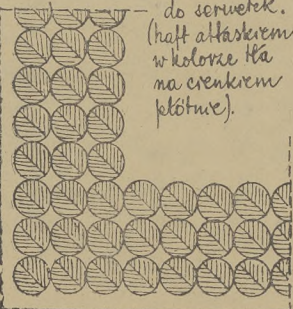 do serwetek.
(haft atłaskiem
w kolorze tła
na cienkiem
płótnie).